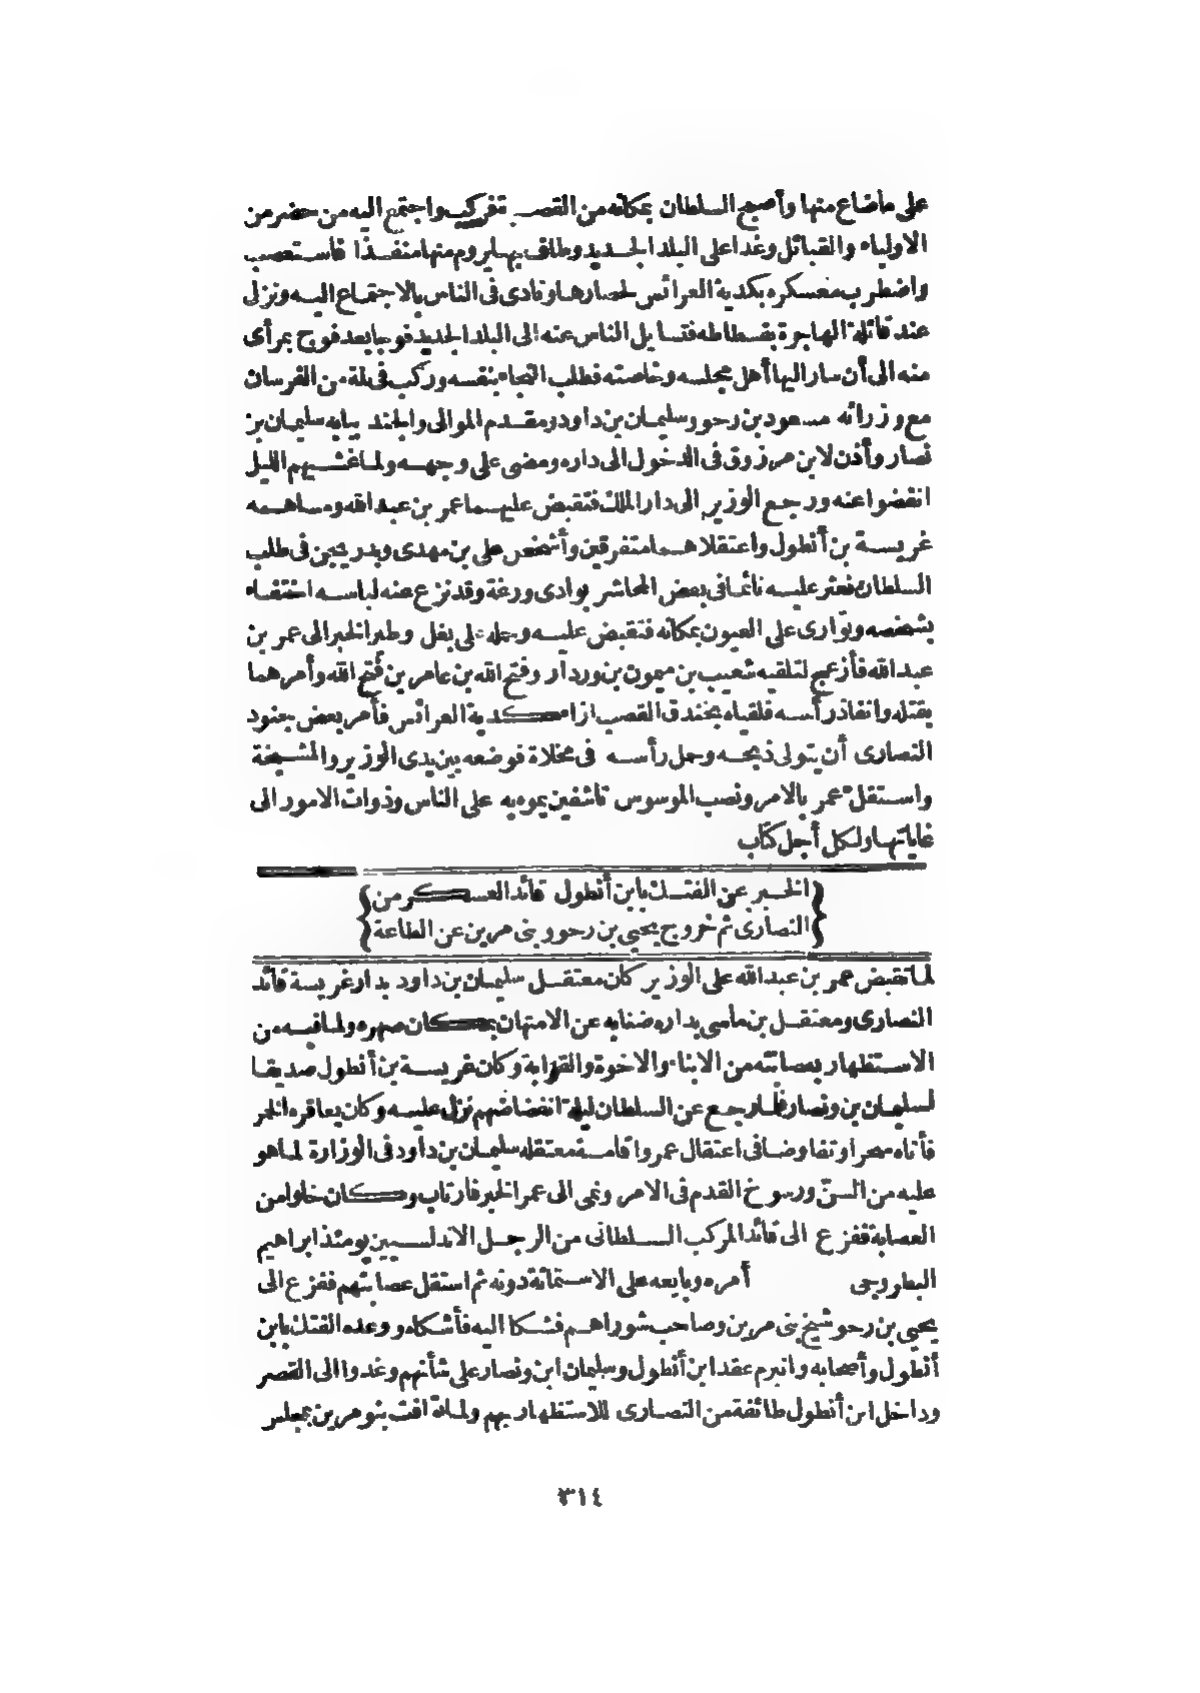 على ماضاع منها وأصبح السلطان بمكانه من القصبة فركب واجتمع اليه من حضر من
الاولياء والقبائل وغدا على البلد الجديد وطاف بها يروم منها منفذا فاستصعب
واضطرب معسكره بكدية العرائس لحصارها ونادى فى الناس بالاجتماع اليه ونزل
عند قائلة الهاجرة بفسطاطه فتسايل الناس عنه الى البلد الجديد فوجا بعد فوج بمرأى
منه الى أن سار اليها أهل مجلسه وخاصته فطلب النجاء بنفسه وركب فى لمة من الفرسان
مع وزرائه مسعود بن رحو وسليمان بن داود ومقدم الموالى والجند ببابه سليمان بن
نصار وأذن لابن مرزوق فى الدخول الى داره ومضى على وجهه ولما غشيهم الليل
انفضوا عنه ورجع الوزير الى دار الملك فتقبض عليهما عمر بن عبد الله ومساهمه
غريسة بن أنطول واعتقلاهما متفرقين وأشخص على بن مهدى وبن يحيى فى طلب
السلطان فعثر عليه نائما فى بعض المحاشر بوادى ورغة وقد نزع عنه لباسه اختفاء
بشخصه وتوارى على العيون بمكانه فتقبض عليه وحمله على بغل وطير الخبر الى عمر بن
عبد الله فأزعج لتلقيه شعيب بن ميمون بن وردار وفتح الله بن عامر بن فتح الله وأمرهما
بقتله وانفاذ رأسه فلقياه بخندق القصب ازاء كدية العرائس فأمر بعض جنود
النصارى أن يتولى ذبحه وحمل رأسه فى مخلاة فوضعه بين يدى الوزير والمشيخة
واستقل عمر بالامر ونصب الموسوس تاشفين يموه به على الناس وذوات الامور الى
غاياتها ولكل أجل كتاب
{الخبر عن الفتك بابن أنطول قائد العسكر من}
{النصارى ثم خروج يحيى بن رحو وبنى مرين عن الطاعة}
لما تقبض عمر بن عبد الله على الوزير كان معتقل سليمان بن داود بدار غريسة قائد
النصارى ومعتقل بن ماسى بداره ضنابه عن الامتهان بمكان صهره ولما فيه من
الاستظهار بعصابته من الابناء والاخوة والقرابة وكان غريسة بن أنطول صديقا
لسليمان بن ونصار فلما رجع عن السلطان ليلة انفضاضهم نزل عليه وكان يعاقره الخمر
فأتاه سحرا وتفاوضا فى اعتقال عمر واقامة معتقله سليمان بن داود فى الوزارة لما هو
عليه من السنّ ورسوخ القدم فى الامر ونمى الى عمر الخبر فارتاب وكان خلوا من
العصابة ففزع الى قائد المركب السلطانى من الرجل الاندلسيين يومئذ ابراهيم
البطروجى أمره وبايعه على الاستماتة دونه ثم استقل عصابتهم ففزع الى
يحيى بن رحو شيخ بنى مرين وصاحب شوراهم فشكا اليه فأشكاه ووعده الفتك بابن
أنطول وأصحابه وانبرم عقد ابن أنطول وسليمان ابن ونصار على شأنهم وغدوا الى القصر
وداخل ابن أنطول طائفة من النصارى للاستظهار بهم ولما توافت بنو مرين بمجلس
٣١٤